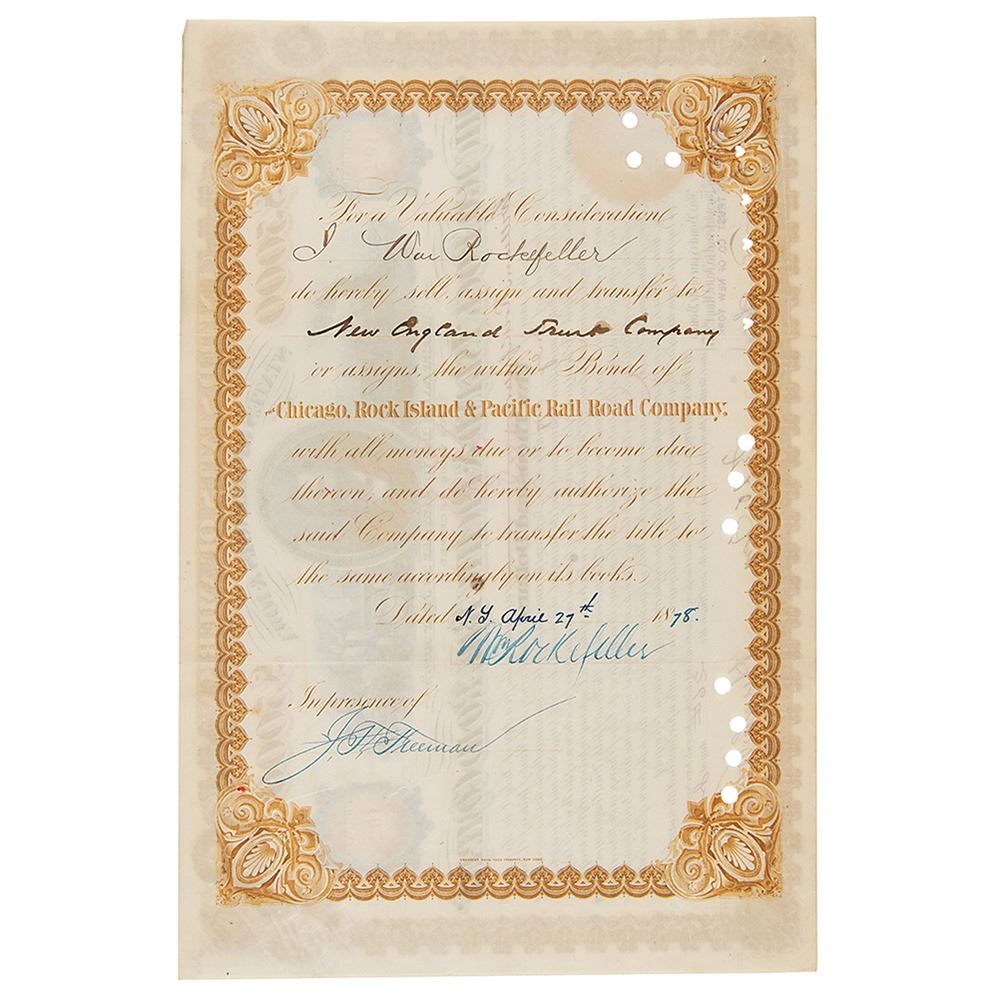 For a Valuable Consideration
I Wm Rockefeller
do hereby sell, assign and transfer to
New England Trust Company
or assigns, the within Bond of
the Chicago, Rock Island & Pacific Rail Road Company,
with all moneys due or to become due
thereon, and do hereby authorize the
said Company to transfer the title to
the same accordingly on its books.
Dated N.Y. April 27th 1878.
Wm Rockefeller
In presence of
J. F. Freeman
AMERICAN BANK NOTE COMPANY, NEW YORK